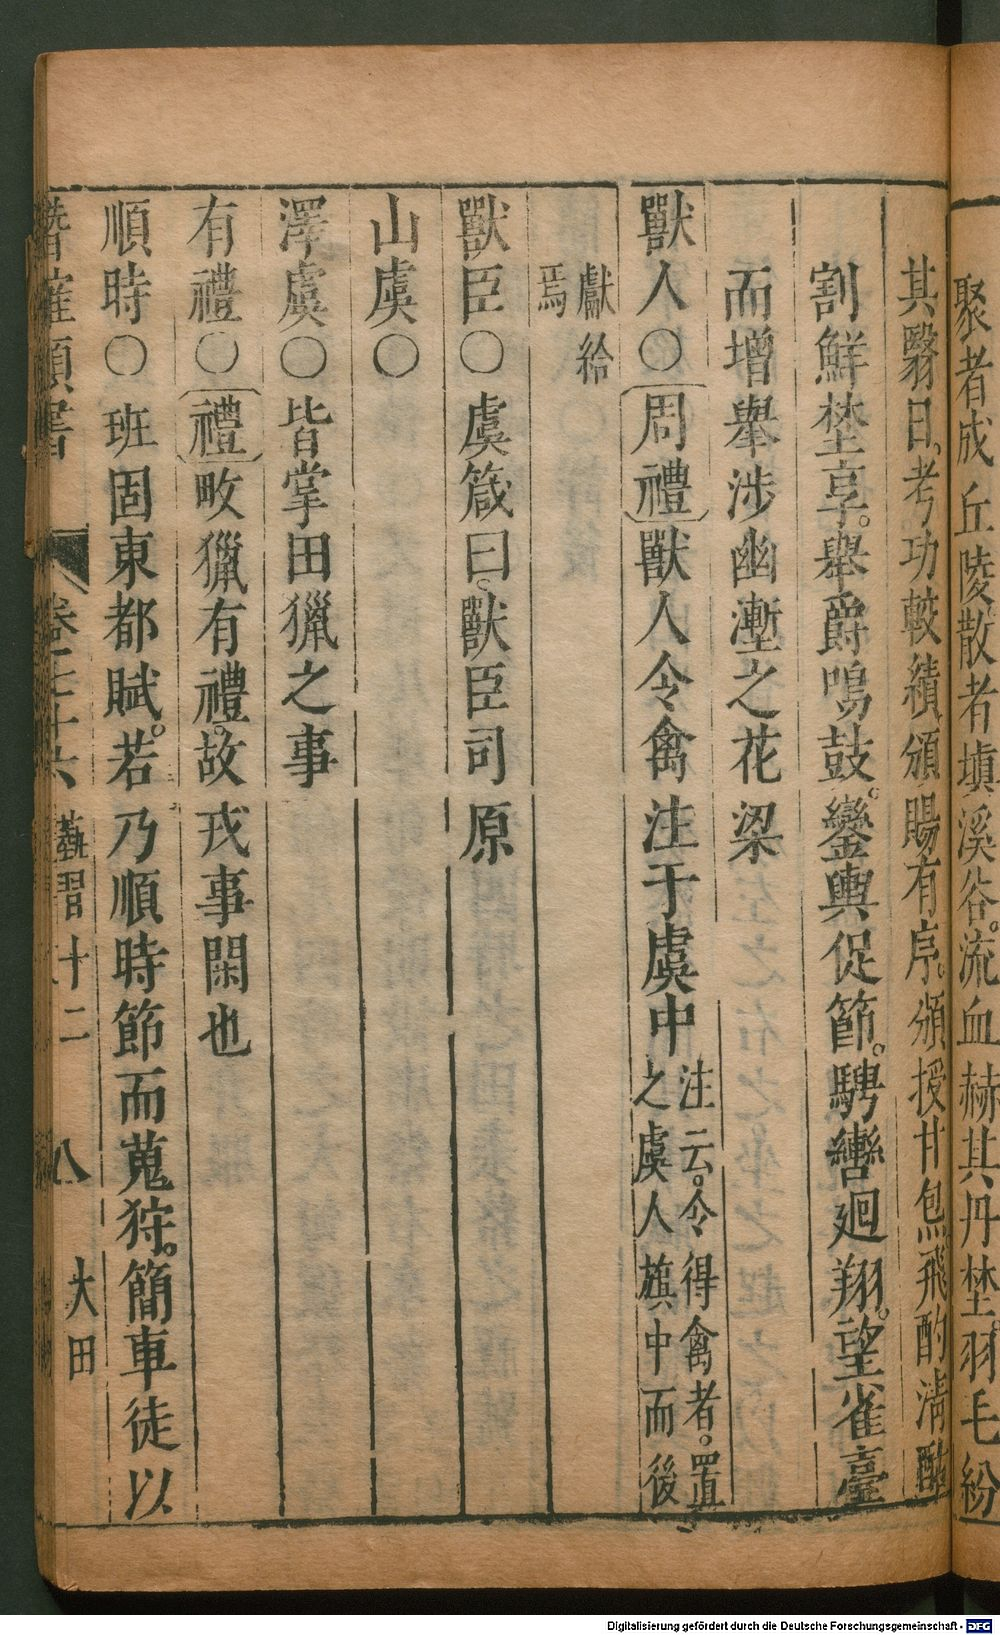 聚者成丘陵散者塡溪谷。流血赫其丹埜。羽毛紛
其翳日。考功較績頒賜有序。頒授甘炰飛酌淸醠
割鮮埜享。舉爵鳴鼓。鑾輿促節。騁轡廻翔。望雀臺
而增舉涉幽壍之花梁
獸人〇周禮獸人令禽注于虞中注云。令得禽者。置之虞人旗中而後
獻給焉
獸臣〇虞箴曰。獸臣司原
山虞〇
澤虞〇皆掌田獵之事
有禮〇禮畋獵有禮。故戎事閑也
順時〇班固東都賦。若乃順時節而蒐狩。簡車徒以
潛確類書 卷 十六 藝習十二 八 大田
Digitalisierung gefördert durch die Deutsche Forschungsgemeinschaft - DFG